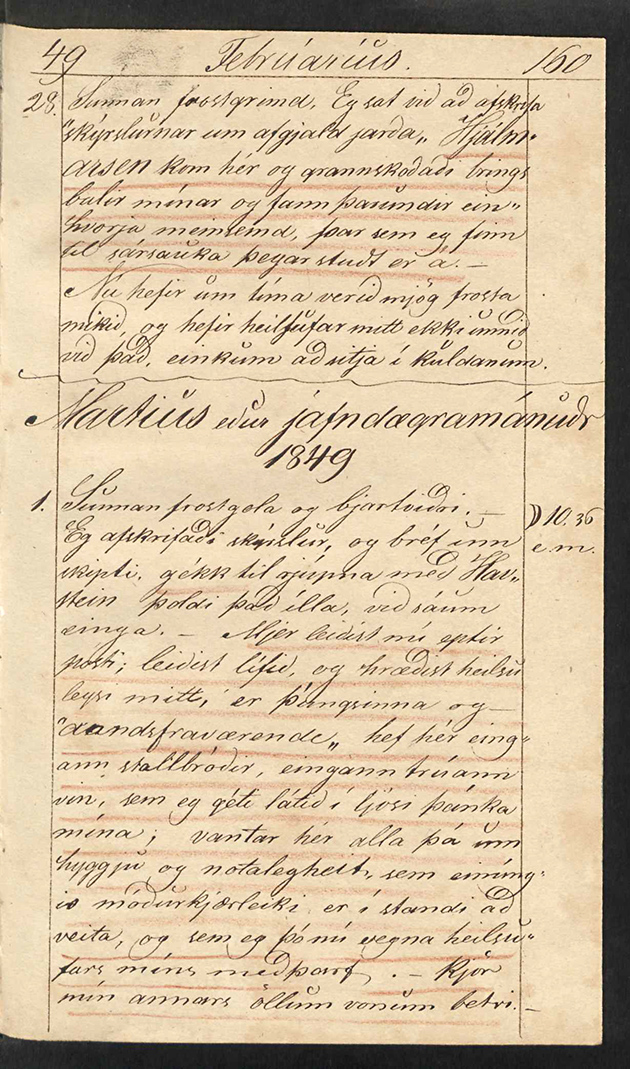 49 Februarius. 160
28. Sunnan frostgrimd. Eg sat við að afskrifa
"skýrslurnar um afgjald jarða„ Hjálm-
arsen kom hér og grannskoðaði brings
balir mínar og fann þarundir ein„
hvorja meinsemd, þar sem eg finn
til sársauka þegar studt er á. —
Nú hefir um tíma verið mjög frosta
mikið, og hefir heilsufar mitt ekki unnið
við það, einkum að sitja í kuldanum.
Martius eður jafndægramánuðr
1849
1. Sunnan frostgola og bjartviðri. — ☽ 10. 36
Eg afskrifaði skýrslur, og bréf unn e. m.
skipti, gékk til rjupna með Hav„
stein þoldi það illa, við sáum
einga. — Mjer leiðist nú eptir
pósti; leiðist lífið, og hræðist heilsu
leysi mitt, er þúngsinna og —
"aandsfraværende„ hef hér eing„
ann stallbróðir, eingann trúann
vin, sem eg géti látið í ljósi þánka
mína; vantar hér alla þá um
hyggju og notalegheit, sem einúng„
is móðurkjærleiki er í standi að
veita, og sem eg þó nú vegna heilsu„
fars míns meðþarf. — Kjör
mín annars öllum vonum betri. —